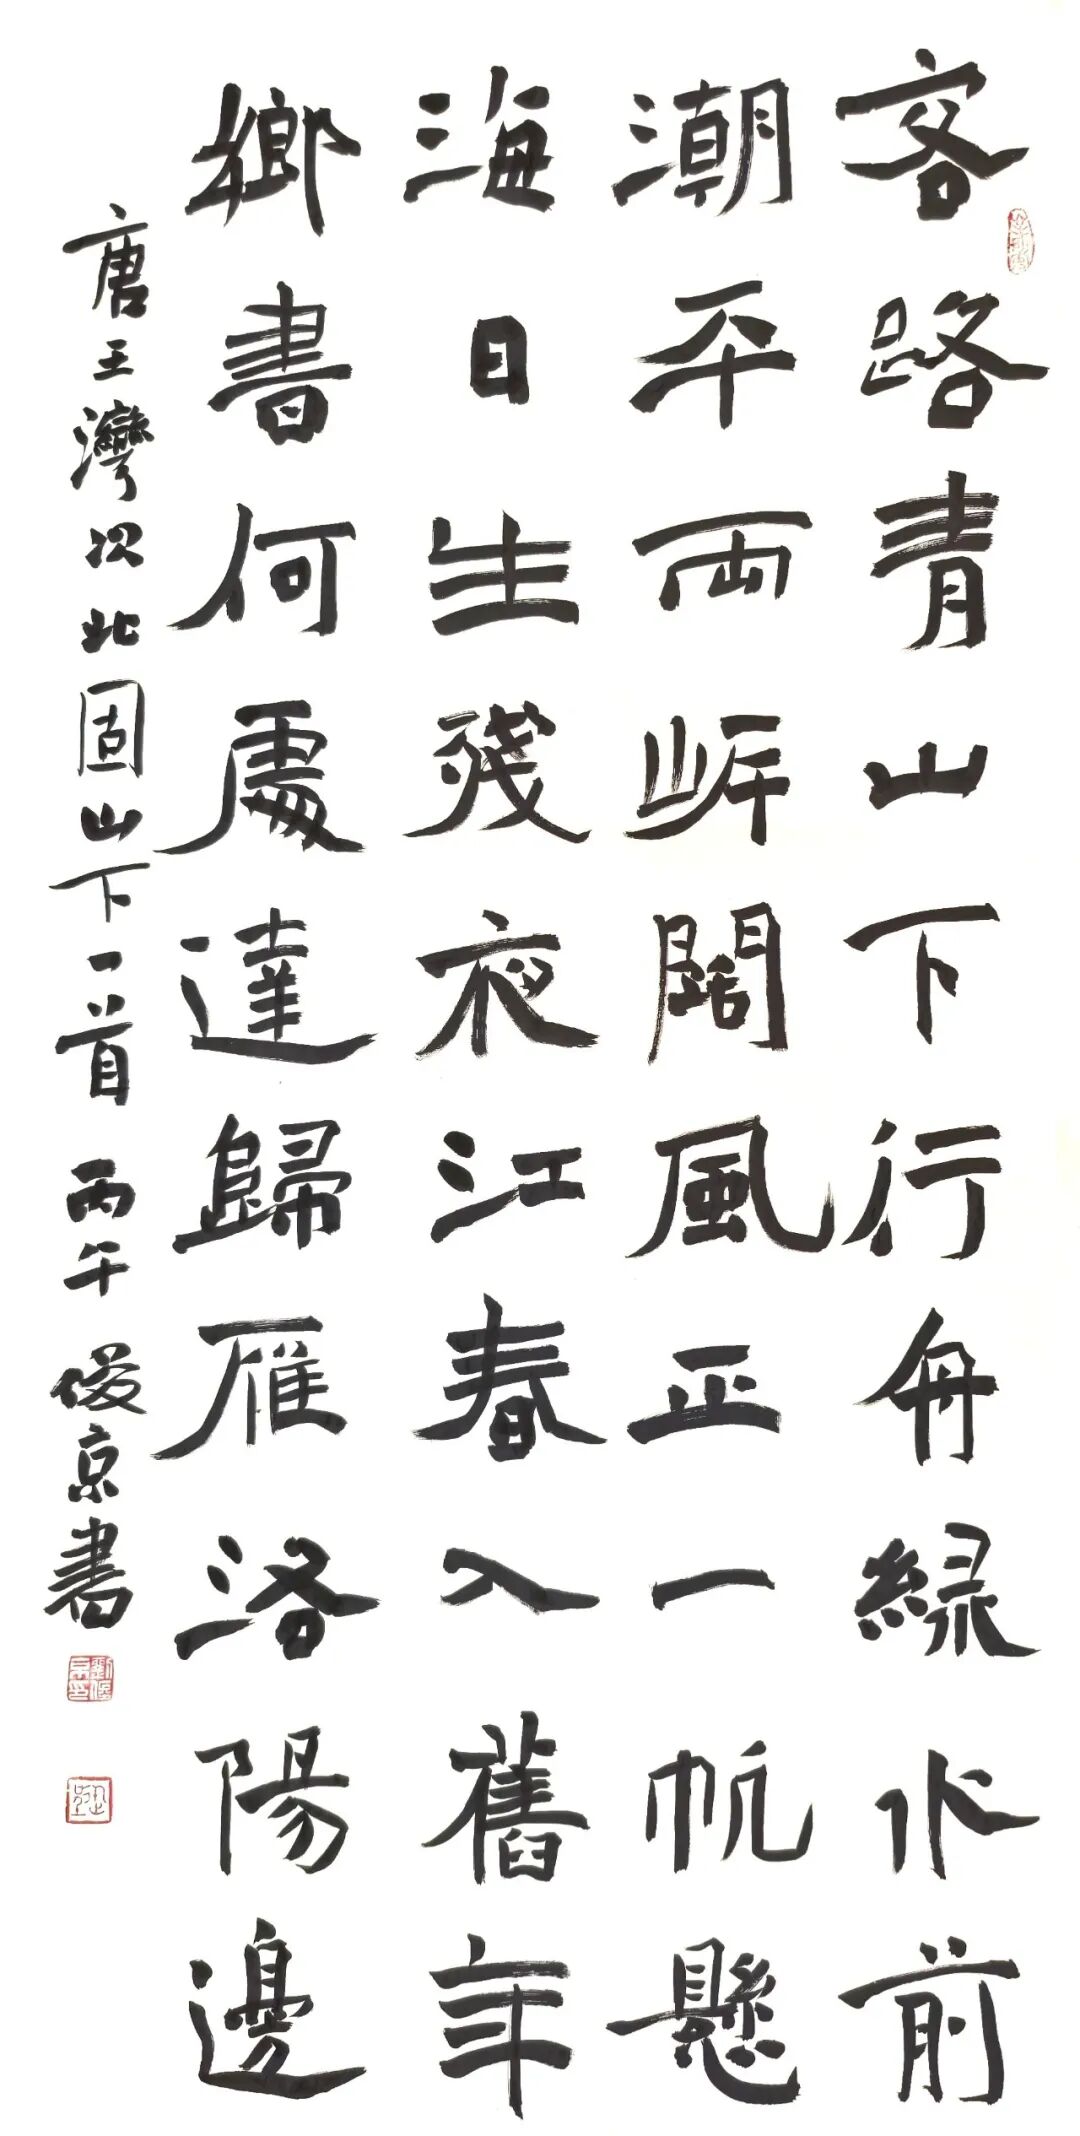 客路青山下行舟緑水前
潮平両岸闊風正一帆懸
海日生残夜江春入舊年
鄉書何處達歸雁洛陽邊
唐王灣次北固山下一首 丙午 俊京書
劉俊京印